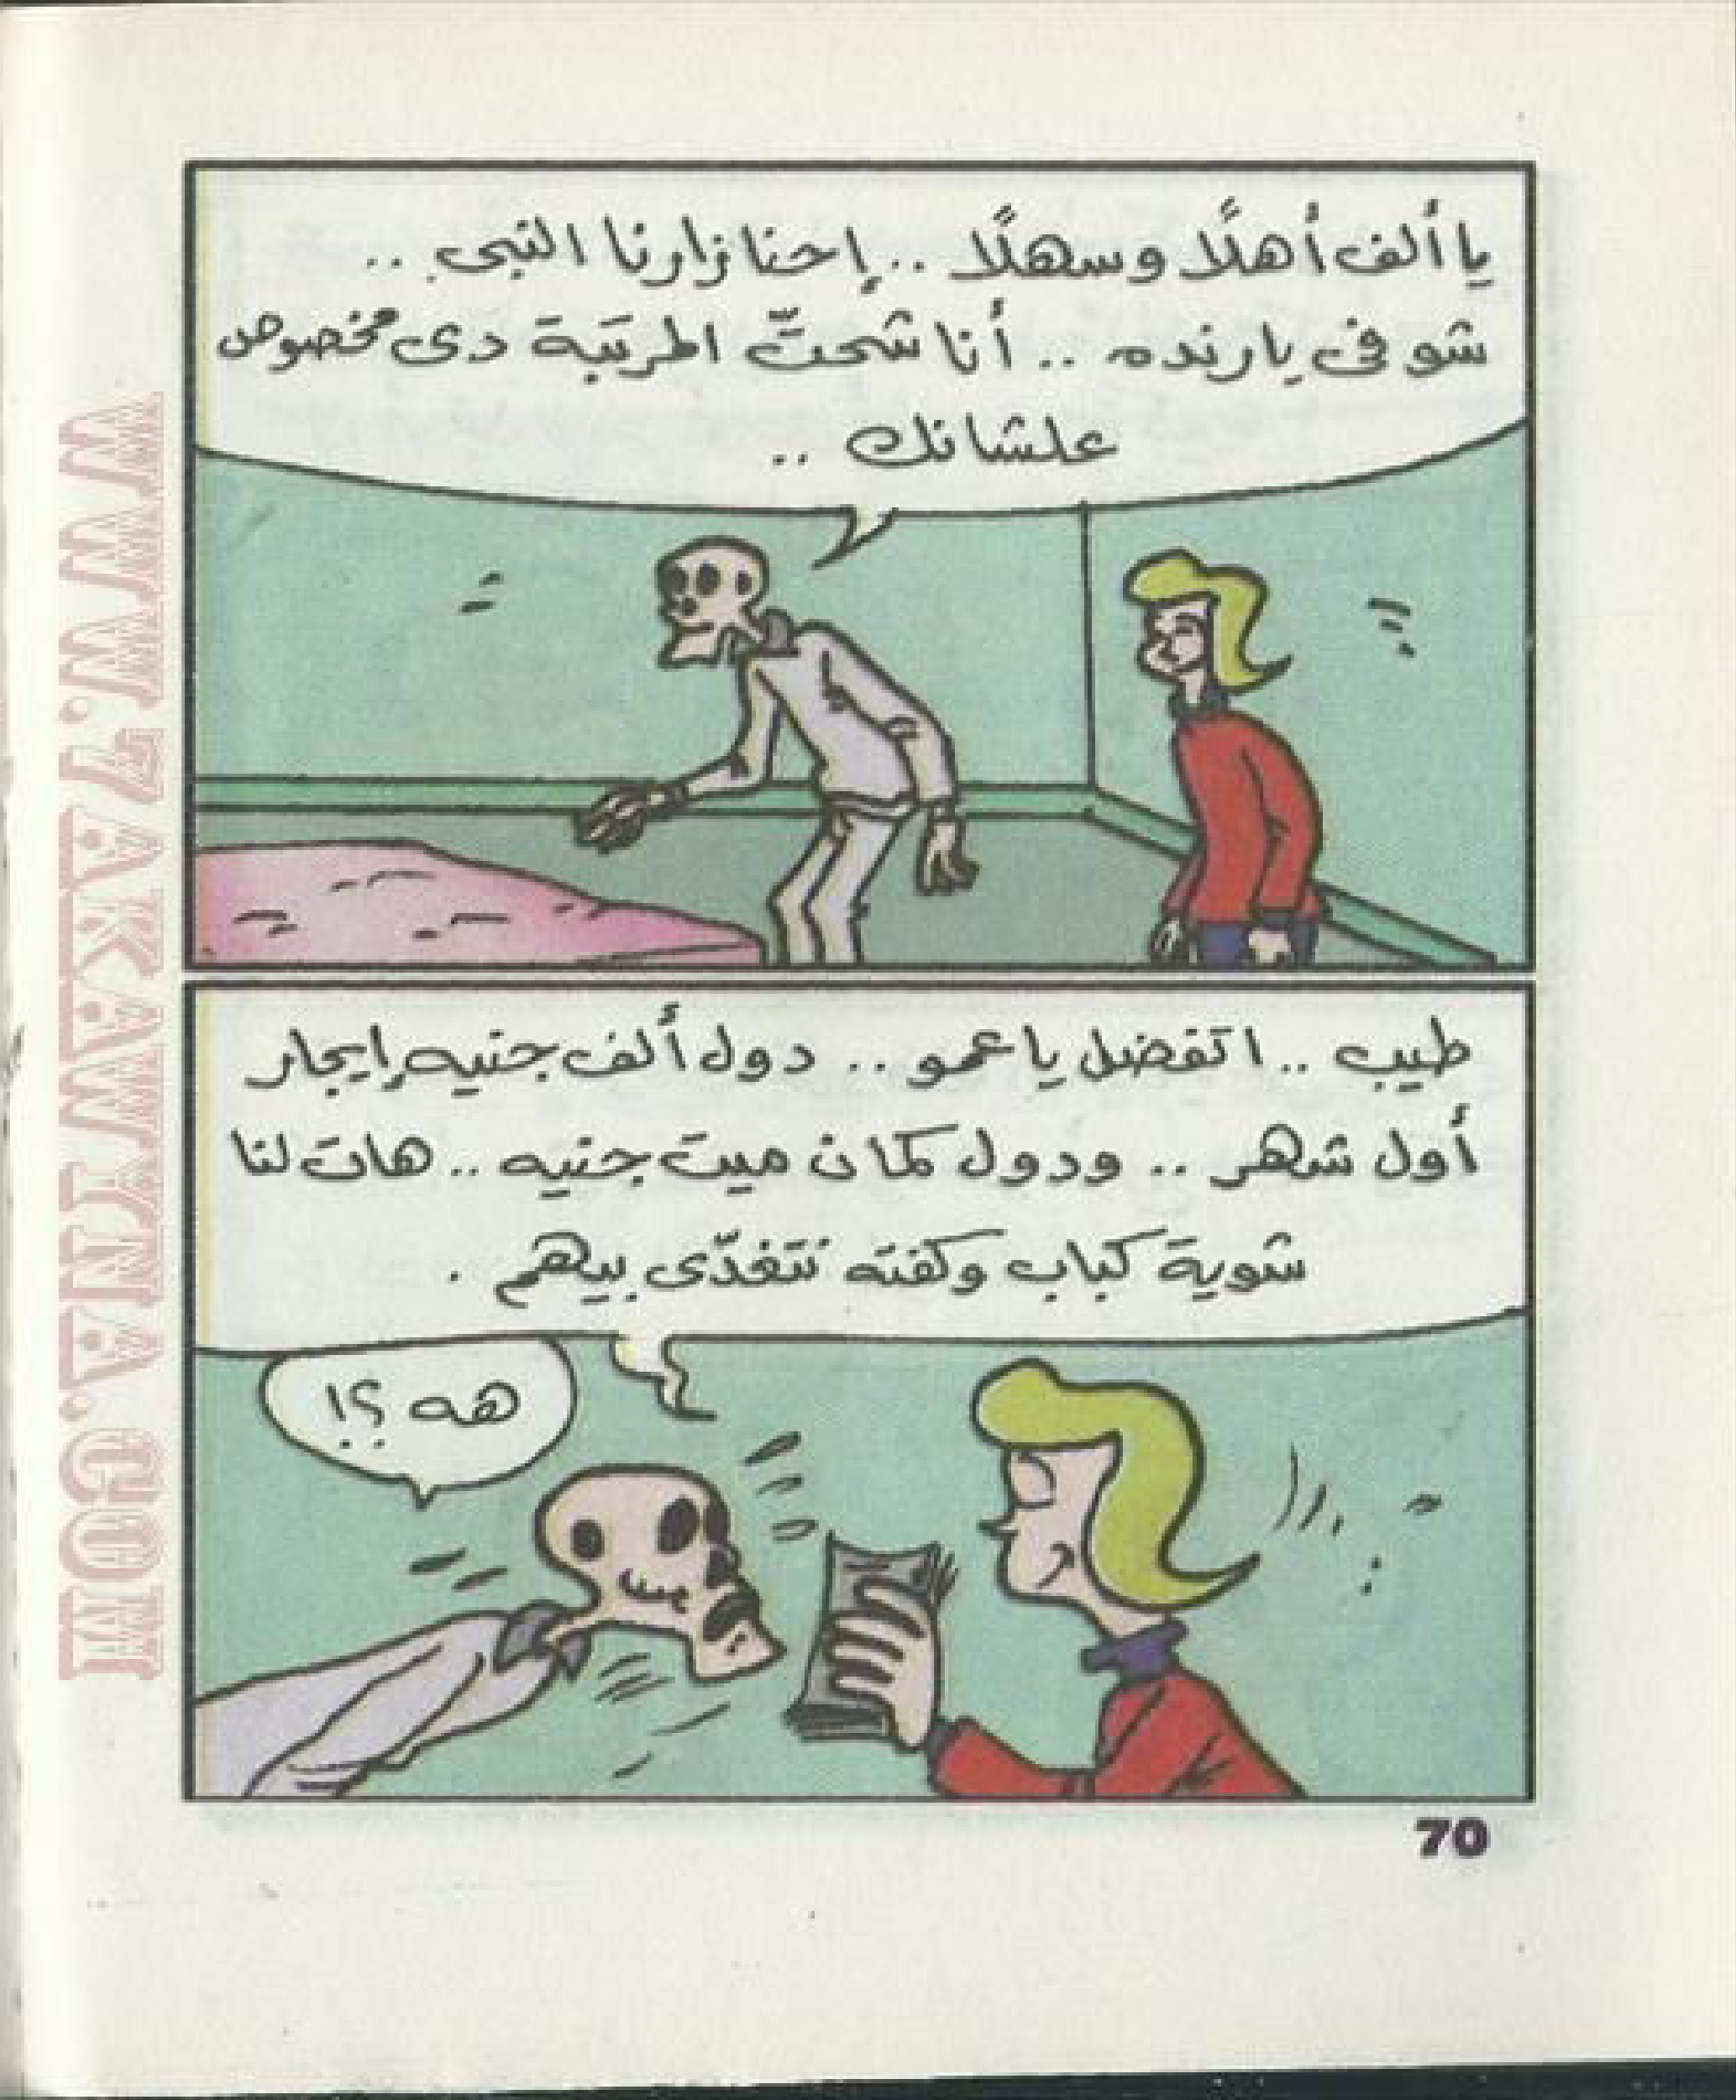 يا ألف أهلًا وسهلًا .. إحنا زارنا النبى ..
شوفى يا رنده .. أنا شحتّ المرتبة دى مخصوص
علشانك ..
طيب .. اتفضل يا عمو .. دول ألف جنيه إيجار
أول شهر .. ودول كمان ميت جنيه .. هات لنا
شوية كباب وكفته نتغدّى بيهم .
هه ؟!
70
WWW.7AKAWITNA.COM